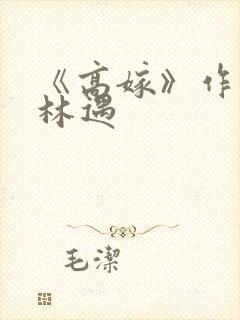 《高嫁》作
林遇
毛潔